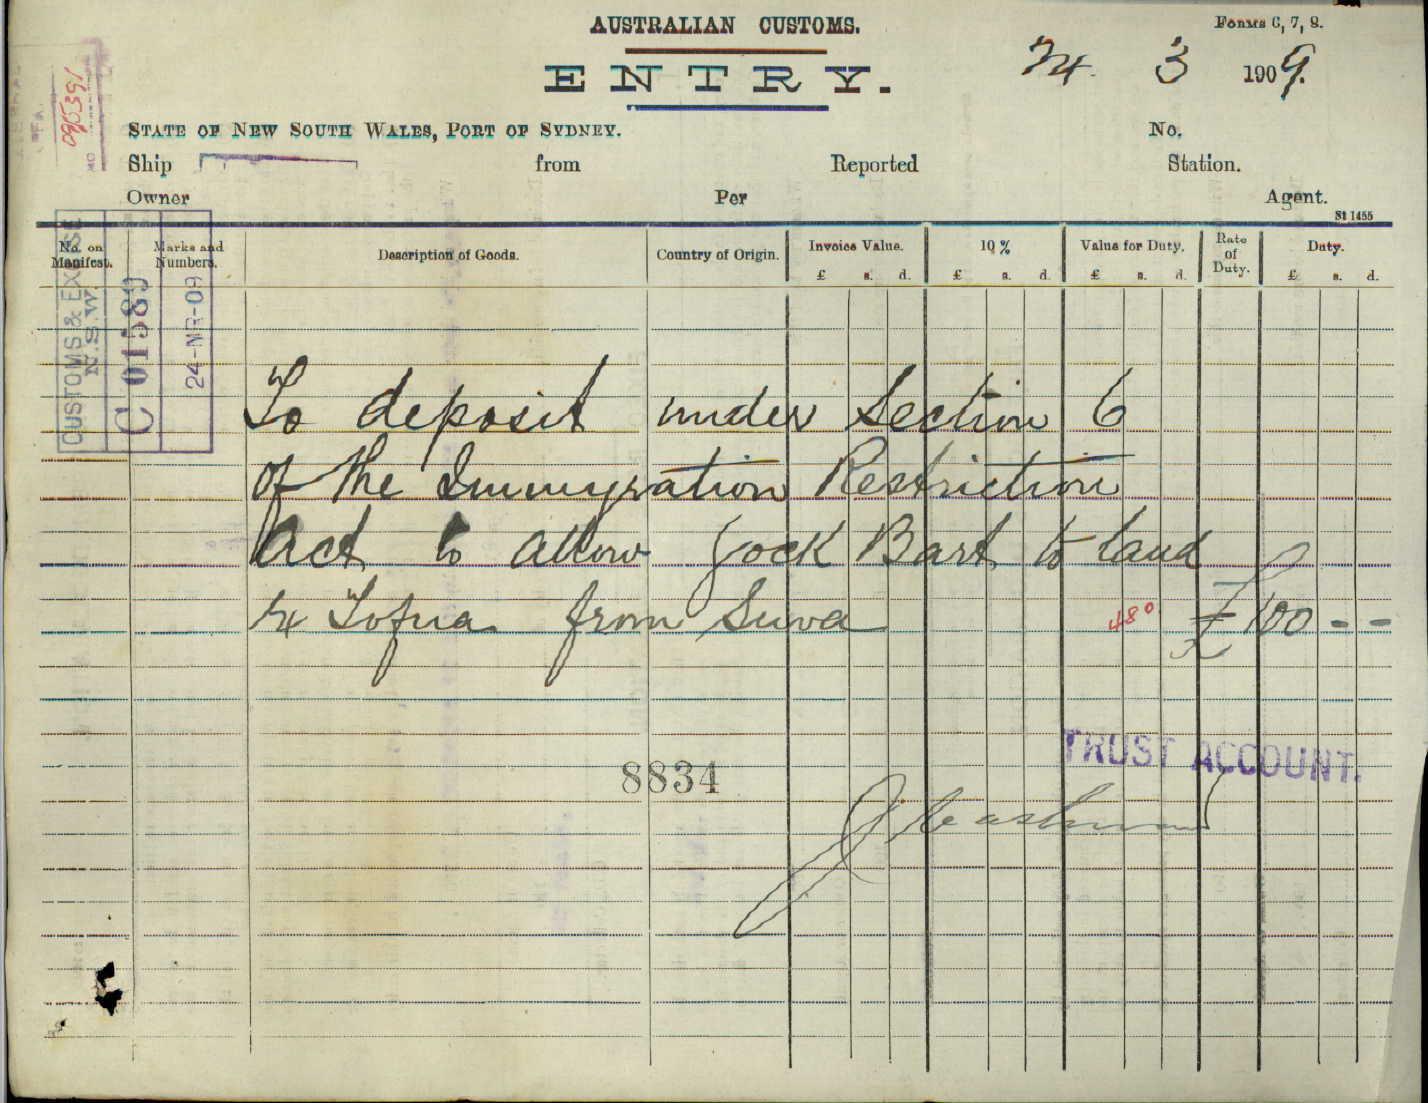 AUSTRALIAN CUSTOMS.
Forms C, 7, 8.
ENTRY.
24 3 1909.
STATE OF NEW SOUTH WALES, PORT OF SYDNEY.
No.
Ship from Reported Station.
Owner Per Agent.
St 1455
No. on Manifest.
Marks and Numbers.
Description of Goods.
Country of Origin.
Invoice Value.
£ s. d.
10 %
£ s. d.
Value for Duty.
£ s. d.
Rate of Duty.
Duty.
£ s. d.
CUSTOMS & EXCISE
N.S.W.
C 01589
24-MR-09
To deposit under Section 6
of the Immigration Restriction
Act to allow Jock Bart to land
ex Tofua from Suva 480 £100 - -
TRUST ACCOUNT.
8834